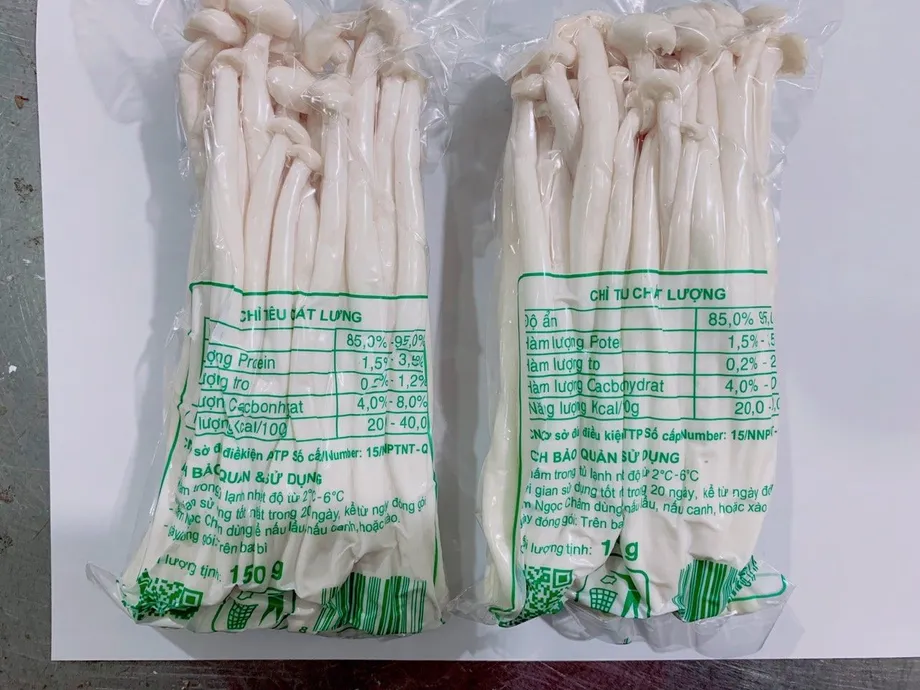 CHỈ TÊU CẤT LƯNG
85,0% -95,0%
ợng Protein 1,5% - 3,5%
ượng tro 0,2% - 1,2%
ượn Cacbonhrat 4,0% - 8,0%
lượng Kcal/100g 20 - 40,0
sở đ điều kiện ATTP Số cấp/Number: 15/NNPTNT - Q
H BẢO QUẢN & SỬ DỤNG
trong lạnh nhiệt độ từ 2°C-6°C
sử ng tốt nhất trong 20 ngày, kể từ ngày đóng gói
Ngọc Ch dùng nấu lẩu, nấu canh, hoặc xào.
đóng gói: Trên bao bì
lượng tịnh: 150 g
CHỈ TU CHẤT LƯỢNG
Độ ẩn 85,0% 95,0
Hàm lượng Pote 1,5% -
Hàm lượng to 0,2% - 2
Hàm lượng Cacbohydrat 4,0% - 0
Năg lượng Kcal/0g 20,0 -
sở đ điều kiện TTP Số cấp/Number: 15/NNPT-
CH BẢO QUẢN SỬ DỤNG
trong tủ lạnh nh độ từ 2°C-6°C
gian sử dụng tốt trong 20 ngày, kể từ ngày đó
Ngọc Châm dùng nấu lẩu, nấu canh, hoặc xào
đóng gói: Trên ba
lượng tịnh: 1 g